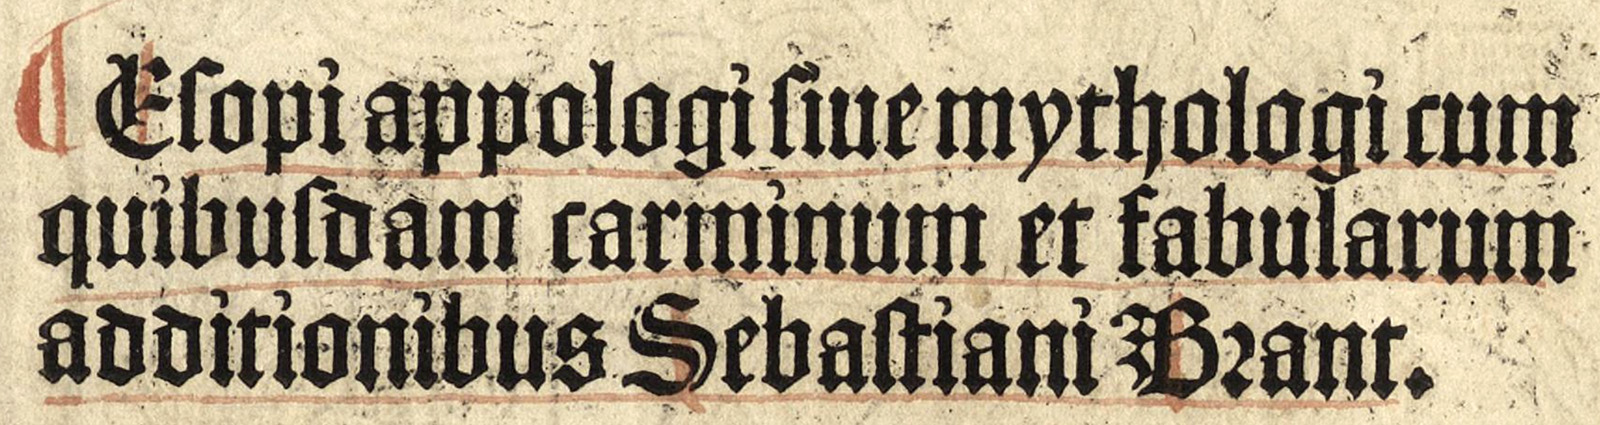 Eſopi appologi ſiue mythologi cum
quibuſdam carminum et fabularum
additionibus Sebaſtiani Brant.